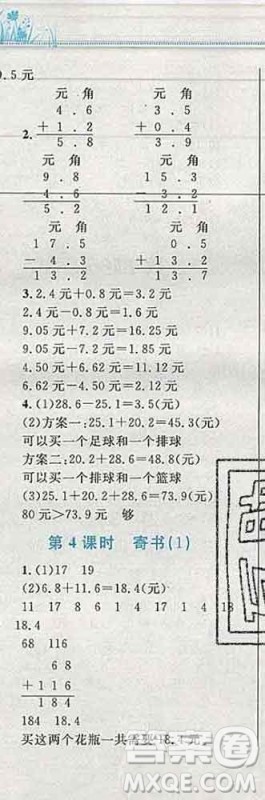 9.5元
元 角 元 角
4.6 3.5
2. +1.2 +0.4
5.8 3.9
元 角 元 角
9.8 15.3
-4.6 -3.2
5.2 12.1
元 角 元 角
17.5 0.5
-4.3 +13.2
13.2 13.7
3.2.4元+0.8元=3.2元
2.4元-0.8元=1.6元
9.05元+7.2元=16.25元
9.05元-7.2元=1.85元
4.50元+6.62元=11.12元
6.62元-4.50元=2.12元
4.(1)28.6-25.1=3.5(元)
(2)方案一:25.1+20.2=45.3(元)
可以买一个足球和一个排球
方案二:20.2+28.6=48.8(元)
可以买一个排球和一个篮球
(3)25.1+20.2+28.6=73.9(元)
80元>73.9元 够
第4课时 寄书(1)
1.(1)17 19
(2)6.8+11.6=18.4(元)
11 17 8 17 14 17 1 4 18
18.4
68 116
68
+116
184
184 18.4
买这两个花瓶一共需要18.4元。
答案圈
MXQE.COM